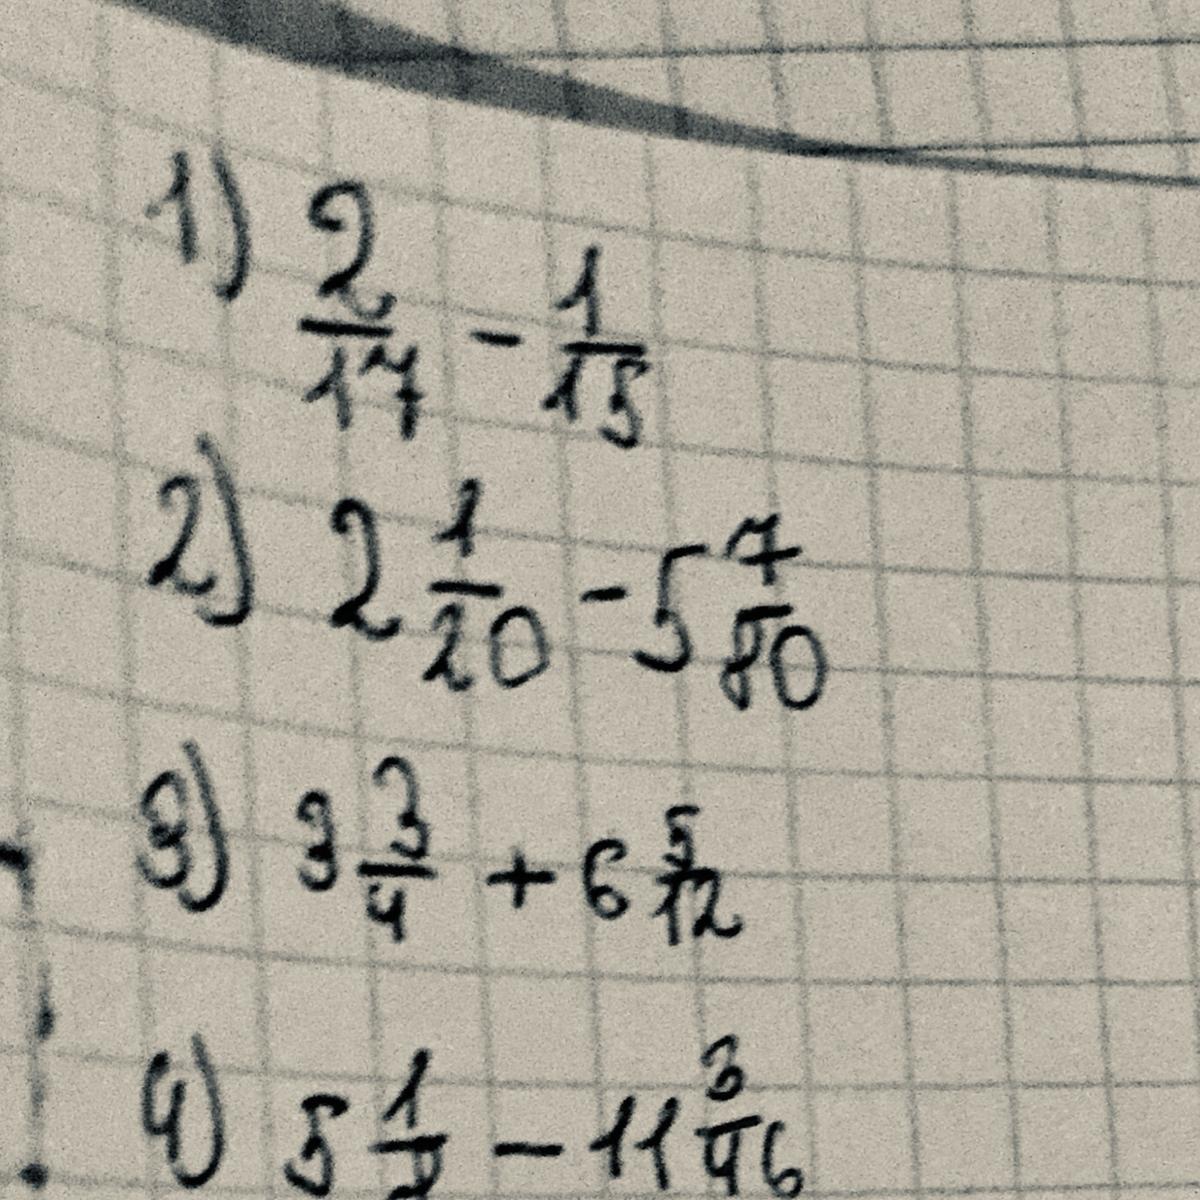 1) 2/17 - 1/15
2) 2 1/20 - 5 7/80
3) 3 3/4 + 6 5/12
4) 5 1/2 - 11 3/46